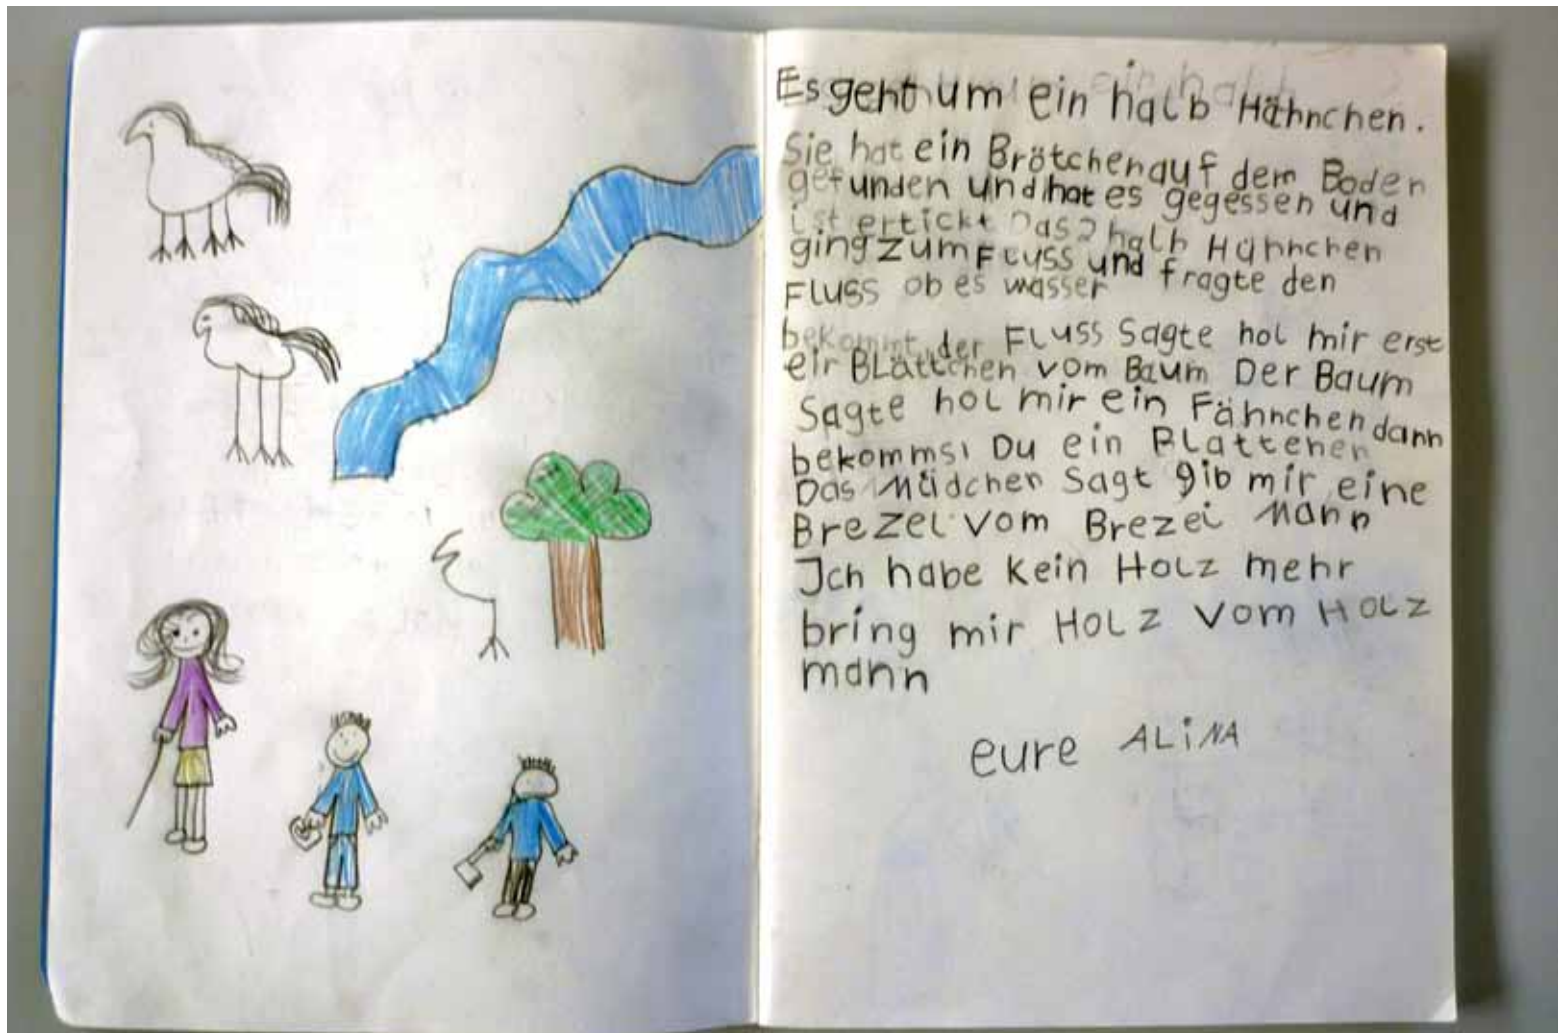 Es geht um ein halb Hähnchen.
Sie hat ein Brötchen auf dem Boden
gefunden und hat es gegessen und
ist ertickt Das halb Hähnchen
ging zum Fluss und fragte den
Fluss ob es wasser
bekommt der Fluss Sagte hol mir erst
ein Blättchen vom Baum Der Baum
Sagte hol mir ein Fähnchen dann
bekommst Du ein Blattchen
Das Mädchen Sagt gib mir eine
Brezel vom Brezel Mann
Ich habe kein Holz mehr
bring mir Holz vom Holz
mann
eure ALiNA